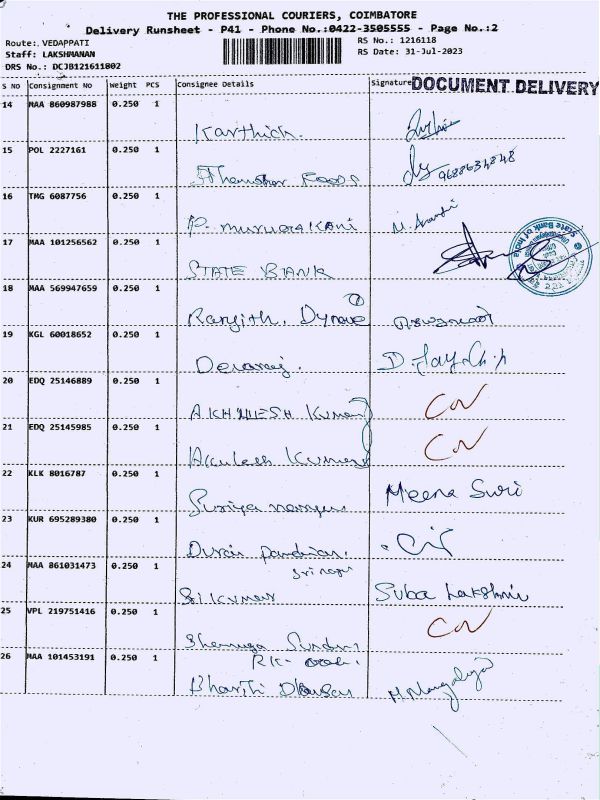 THE PROFESSIONAL COURIERS, COIMBATORE
Delivery Runsheet - P41 - Phone No.:0422-3505555 - Page No.:2
Route: VEDAPPATI
RS No.: 1216118
Staff: LAKSHMANAN
RS Date: 31-Jul-2023
DRS No.: DCJB121611802
S NO Consignment No Weight PCS Consignee Details Signature DOCUMENT DELIVERY
14 MAA 860987988 0.250 1
Karthick.
15 POL 2227161 0.250 1
9688634848
16 TMG 6087756 0.250 1
P. murugakani
17 MAA 101256562 0.250 1
STATE BANK
State Bank of India
18 MAA 569947659 0.250 1
Ranjith.
19 KGL 60018652 0.250 1
Devaraj.
20 EDQ 25146889 0.250 1
AKHILESH Kumar
21 EDQ 25145985 0.250 1
Akulesh Kumar
22 KLK 8016787 0.250 1
Meena Suri
23 KUR 695289380 0.250 1
Durai pandian.
24 MAA 861031473 0.250 1
Suba Lakshmi
25 VPL 219751416 0.250 1
26 MAA 101453191 0.250 1